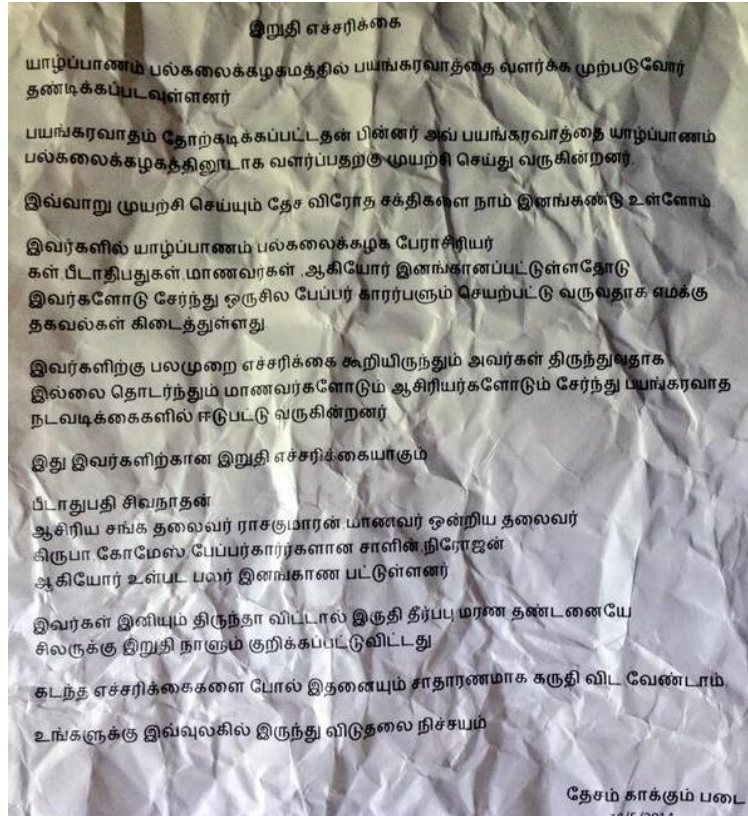 இறுதி எச்சரிக்கை
யாழ்ப்பாணம் பல்கலைக்கழகமத்தில் பயங்கரவாத்தை வளர்க்க முற்படுவோர்
தண்டிக்கப்படவுள்ளனர்
பயங்கரவாதம் தோற்கடிக்கப்பட்டதன் பின்னர் அவ் பயங்கரவாத்தை யாழ்ப்பாணம்
பல்கலைக்கழகத்தினூடாக வளர்ப்பதற்கு முயற்சி செய்து வருகின்றனர்.
இவ்வாறு முயற்சி செய்யும் தேச விரோத சக்திகளை நாம் இனங்கண்டு உள்ளோம்
இவர்களில் யாழ்ப்பாணம் பல்கலைக்கழக பேராசிரியர்
கள்,பீடாதிபதுகள்,மாணவர்கள் ,ஆகியோர் இனங்கானப்பட்டுள்ளதோடு
இவர்களோடு சேர்ந்து ஒருசில பேப்பர் காரர்பளும் செயற்பட்டு வருவதாக எமக்கு
தகவல்கள் கிடைத்துள்ளது.
இவர்களிற்கு பலமுறை எச்சரிக்கை கூறியிருந்தும் அவர்கள் திருந்துவதாக
இல்லை தொடர்ந்தும் மாணவர்களோடும் ஆசிரியர்களோடும் சேர்ந்து பயங்கரவாத
நடவடிக்கைகளில் ஈடுபட்டு வருகின்றனர்
இது இவர்களிற்கான இறுதி எச்சரிக்கையாகும்
பீடாதுபதி சிவநாதன்
ஆசிரிய சங்க தலைவர் ராசகுமாரன்,மாணவர் ஒன்றிய தலைவர்
கிருபா,கோமேஸ்,பேப்பர்கார்ர்களான சாளின்,நிரோஜன்
ஆகியோர் உள்பட பலர் இனங்காண பட்டுள்ளனர்
இவர்கள் இனியும் திருந்தா விட்டால் இருதி தீர்பபு மரண தண்டனையே
சிலருக்கு இறுதி நாளும் குறிக்கப்பட்டுவிட்டது
கடந்த எச்சரிக்கைகளை போல் இதனையும் சாதாரணமாக கருதி விட வேண்டாம்.
உங்களுக்கு இவ்வுலகில் இருந்து விடுதலை நிச்சயம்
தேசம் காக்கும் படை